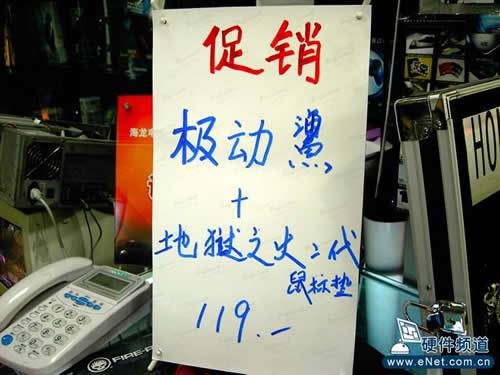 促销
极动
+
地獄之火二代
鼠标垫
119.—
海龙电
HO
FIRE-
硬件频道
www.eNet.com.cn